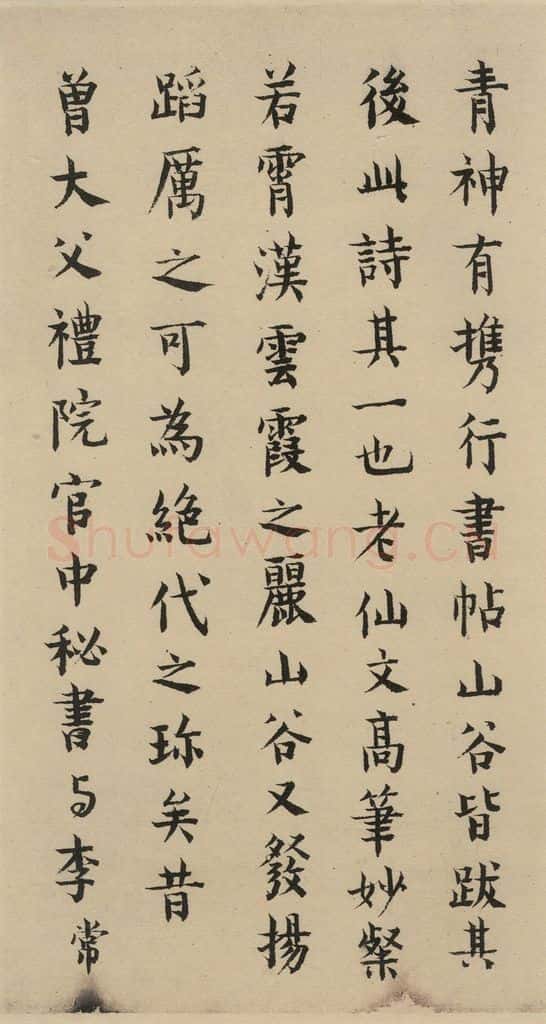 青神有攜行書帖山谷皆跋其
後此詩其一也老仙文高筆妙粲
若霄漢雲霞之麗山谷又發揚
蹈厲之可為絕代之珎矣昔
曾大父禮院官中秘書与李常
Shufawang.cn